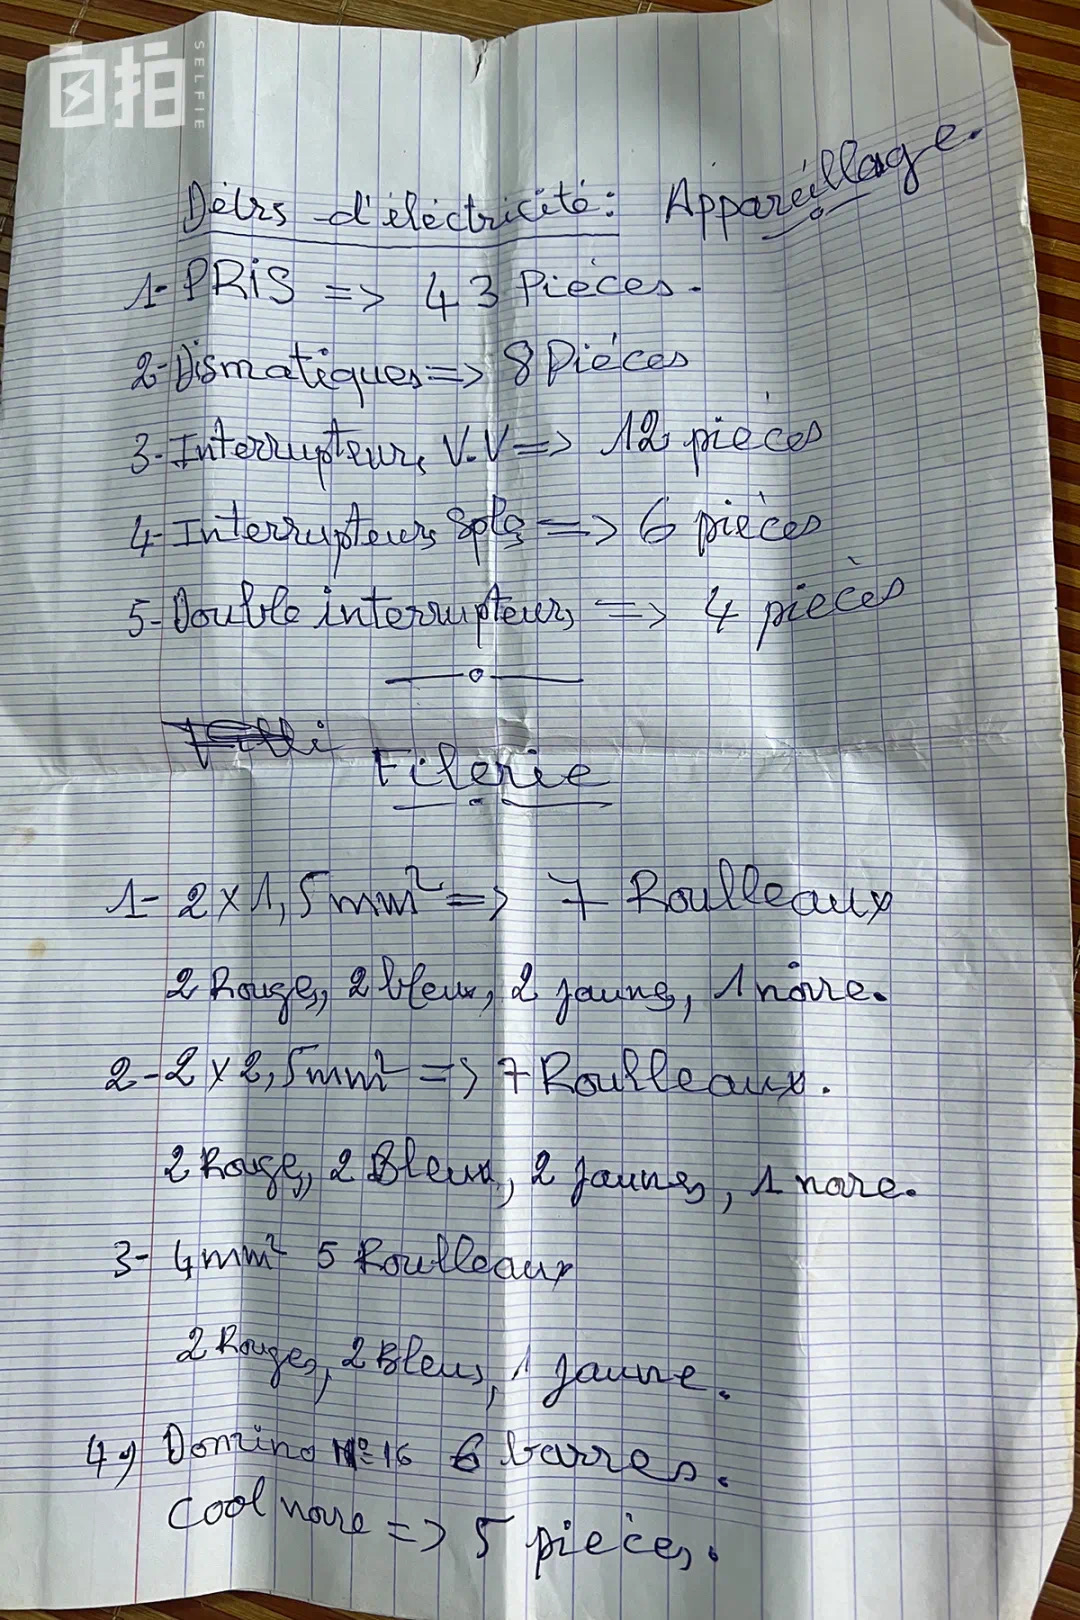 自拍
SELFIE
Détrs d'éléctricité: Appareillage.
1- PRiS => 43 Pièces.
2- Dismatiques => 8 Pièces
3- Interrupteurs V.V => 12 pièces
4- Interrupteurs Spls => 6 pièces
5- Double interrupteurs => 4 pièces
Filerie
1- 2x1,5mm² => 7 Roulleaux
2 Rouges, 2 bleux, 2 jaunes, 1 noire.
2- 2x2,5mm² => 7 Roulleaux.
2 Rouges, 2 Bleux, 2 jaunes, 1 noire.
3- 4mm² 5 Roulleaux
2 Rouges, 2 Bleus, 1 jaune.
4) Domino N° 16 6 barres.
Cool noire => 5 pièces.